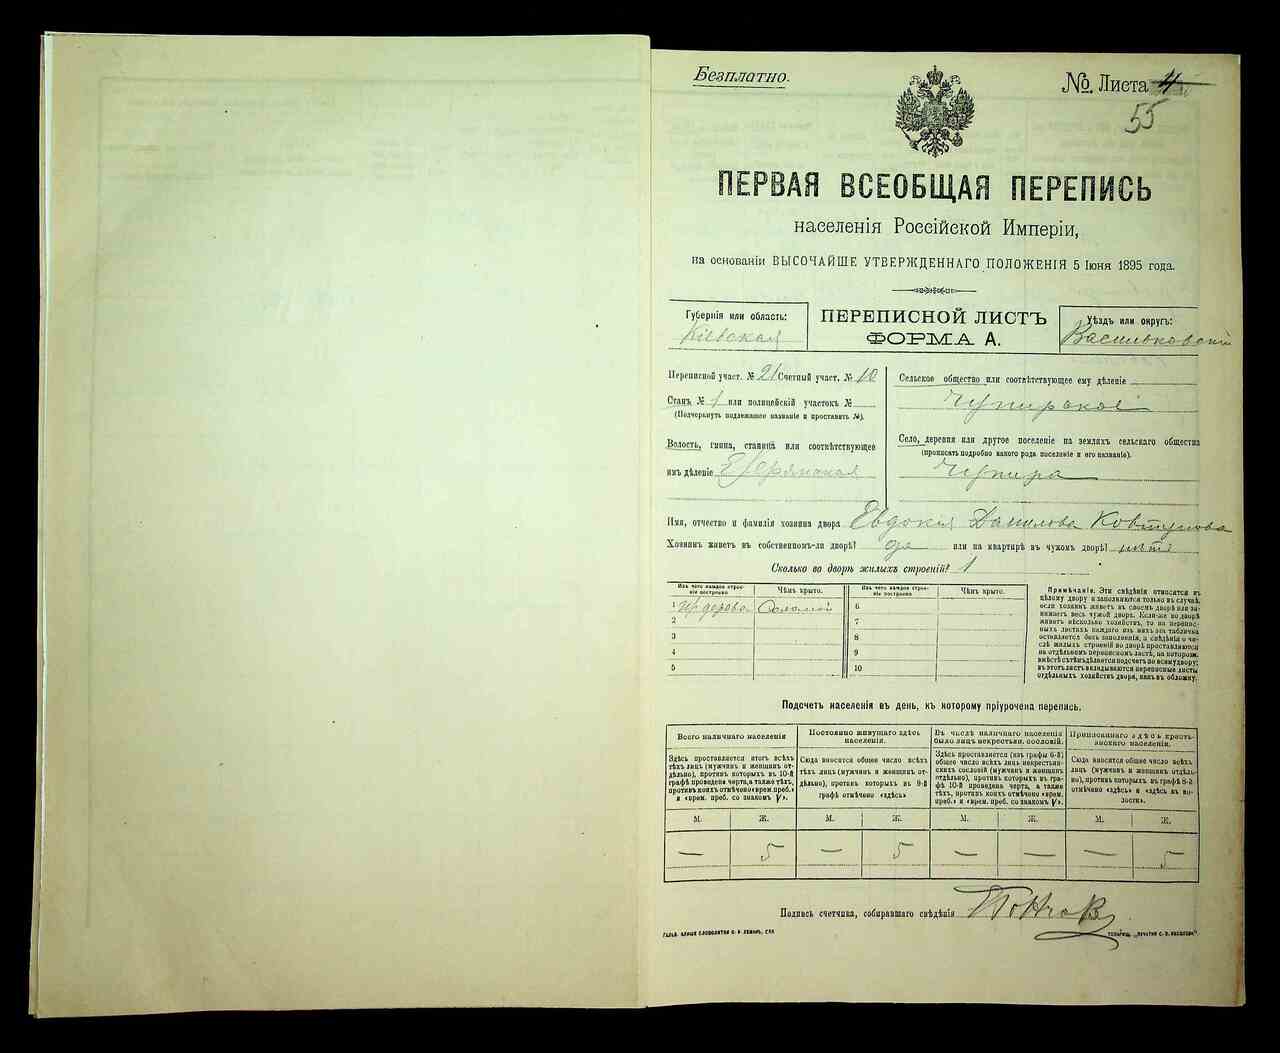 Безплатно.
№ Листа
55
ПЕРВАЯ ВСЕОБЩАЯ ПЕРЕПИСЬ
населенія Россійской Имперіи,
на основаніи ВЫСОЧАЙШЕ УТВЕРЖДЕННАГО ПОЛОЖЕНІЯ 5 Іюня 1895 года.
Губернія или область:
Кіевская
ПЕРЕПИСНОЙ ЛИСТЪ
ФОРМА А.
Уѣздъ или округъ:
Васильковскій
Переписной участ. № 21 Счетный участ. № 10
Станъ № 1 или полицейскій участокъ №
(Подчеркнуть подлежащее названіе и проставить №).
Волость, гмина, станица или соотвѣтствующее
имъ дѣленіе
Сельское общество или соотвѣтствующее ему дѣленіе
Чупирское
Село, деревня или другое поселеніе на земляхъ сельскаго общества
(прописать подробно какого рода поселеніе и его названіе).
Чупира
Имя, отчество и фамилія хозяина двора Евдокія Данилова Ковтунова
Хозяинъ живетъ въ собственномъ-ли дворѣ? да или на квартирѣ въ чужомъ дворѣ? нѣтъ
Сколько во дворѣ жилыхъ строеній? 1
Изъ чего каждое строеніе построено
Чѣмъ крыто.
Изъ чего каждое строеніе построено
Чѣмъ крыто.
1 Изъ дерева Соломой
2
3
4
5
6
7
8
9
10
Примѣчаніе. Эти свѣдѣнія относятся къ
цѣлому двору и заполняются только въ случаѣ,
если хозяинъ живетъ въ своемъ дворѣ или занимаетъ
весь чужой дворъ. Если-же во дворѣ
живетъ нѣсколько хозяйствъ, то на переписныхъ
листахъ каждаго изъ нихъ эта табличка
оставляется безъ заполненія, а свѣдѣнія о числѣ
жилыхъ строеній во дворѣ проставляются
на отдѣльномъ переписномъ листѣ, на которомъ
вмѣстѣ съ тѣмъ дѣлается подсчетъ по всему двору;
въ этотъ листъ вкладываются переписные листы
отдѣльныхъ хозяйствъ двора, какъ въ обложку.
Подсчетъ населенія въ день, къ которому пріурочена перепись.
Всего наличнаго населенія
Здѣсь проставляется итогъ всѣхъ
тѣхъ лицъ (мужчинъ и женщинъ отдѣльно),
противъ которыхъ въ 10-й
графѣ проведена черта, а также тѣхъ,
противъ коихъ отмѣчено «врем. преб.»
и «врем. преб. со знакомъ V».
Постоянно живущаго здѣсь
населенія.
Сюда вносится общее число всѣхъ
тѣхъ лицъ (мужчинъ и женщинъ отдѣльно),
противъ которыхъ въ 9-й
графѣ отмѣчено «здѣсь»
Въ числѣ наличнаго населенія
было лицъ некрестьян. сословій.
Здѣсь проставляется (изъ графы 6-й)
общее число всѣхъ лицъ некрестьянскихъ
сословій (мужчинъ и женщинъ
отдѣльно), противъ которыхъ въ графѣ
10-й проведена черта, а также
тѣхъ, противъ коихъ отмѣчено «врем.
преб.» и «врем. преб. со знакомъ V».
Приписаннаго здѣсь крестьянскаго
населенія.
Сюда вносится общее число всѣхъ
лицъ (мужчинъ и женщинъ отдѣльно),
противъ которыхъ въ графѣ 8-й
отмѣчено «здѣсь» и «здѣсь въ волости».
М. Ж. М. Ж. М. Ж. М. Ж.
— 5 — 5 — — — 5
Подпись счетчика, собиравшаго свѣдѣнія